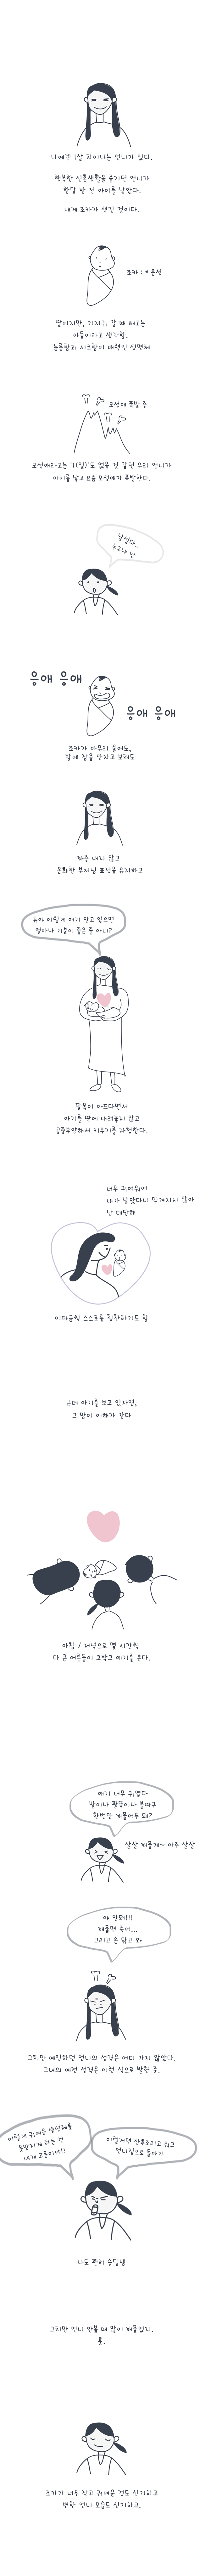 나에겐 1살 차이나는 언니가 있다.
행복한 신혼생활을 즐기던 언니가
한달 반 전 아이를 낳았다.
내게 조카가 생긴 것이다.
조카 : * 은성
딸이지만, 기저귀 갈 때 빼고는
아들이라고 생각함.
늠름함과 시크함이 매력인 생명체
모성애 폭발 중
모성애라고는 '1(일)'도 없을 것 같던 우리 언니가
아이를 낳고 요즘 모성애가 폭발한다.
낯설다..
누구냐 넌
응애 응애
응애 응애
조카가 아무리 울어도,
밤에 잠을 안자고 보채도
짜증 내지 않고
온화한 부처님 표정을 유지하고
유야 이렇게 애기 안고 있으면
얼마나 기분이 좋은 줄 아니?
팔목이 아프다면서
아기를 땅에 내려놓지 않고
공중부양해서 키우기를 자청한다.
너무 귀여워어
내가 낳았다니 믿겨지지 않아
난 대단해
이따금씩 스스로를 칭찬하기도 함
근데 아기를 보고 있자면,
그 맘이 이해가 간다
아침 / 저녁으로 몇 시간씩
다 큰 어른들이 코박고 애기를 본다.
애기 너무 귀엽다
발이나 팔뚝이나 볼따구
한번만 깨물어두 돼?
살살 깨물게~ 아주 살살
야 안돼!!!
깨물면 죽어...
그리고 손 닦고 와
그치만 예민하던 언니의 성격은 어디 가지 않았다.
그녀의 예전 성격은 이런 식으로 발현 중.
이렇게 귀여운 생명체를
못만지게 하는 건
내게 고문이야!!
이럴거면 산후조리고 뭐고
언니집으로 돌아가
나도 괜히 승질냄
그치만 언니 안볼 때 많이 깨물었지.
풋.
조카가 너무 작고 귀여운 것도 신기하고
변한 언니 모습도 신기하고.